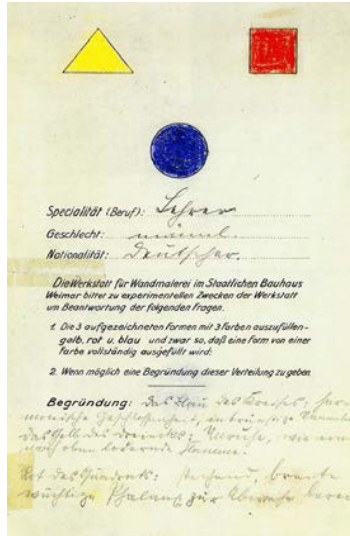 Specialität (Beruf): Lehrer
Geschlecht: männl.
Nationalität: Deutscher.
Die Werkstatt für Wandmalerei im Staatlichen Bauhaus
Weimar bittet zu experimentellen Zwecken der Werkstatt
um Beantwortung der folgenden Fragen.
1. Die 3 aufgezeichneten Formen mit 3 Farben auszufüllen-
gelb, rot u. blau und zwar so, daß eine Form von einer
Farbe vollständig ausgefüllt wird;
2. Wenn möglich eine Begründung dieser Verteilung zu geben
Begründung: Das Blau des Kreises: har
monische Geschlossenheit,
das Gelb des Dreiecks: Unruhe, wie eine
nach oben lodernde Flamme.
Rot des Quadrats: stehend, breite
wuchtige Phalanx zur Abwehr bereit